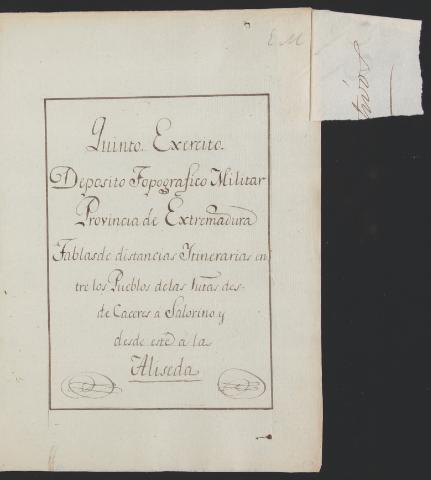 E M
Quinto Exercito.
Deposito Topografico Militar
Provincia de Extremadura
Tablas de distancias Itinerarias en
tre los Pueblos de las rutas des-
de Caceres a Salorino y
desde este á la
Aliseda